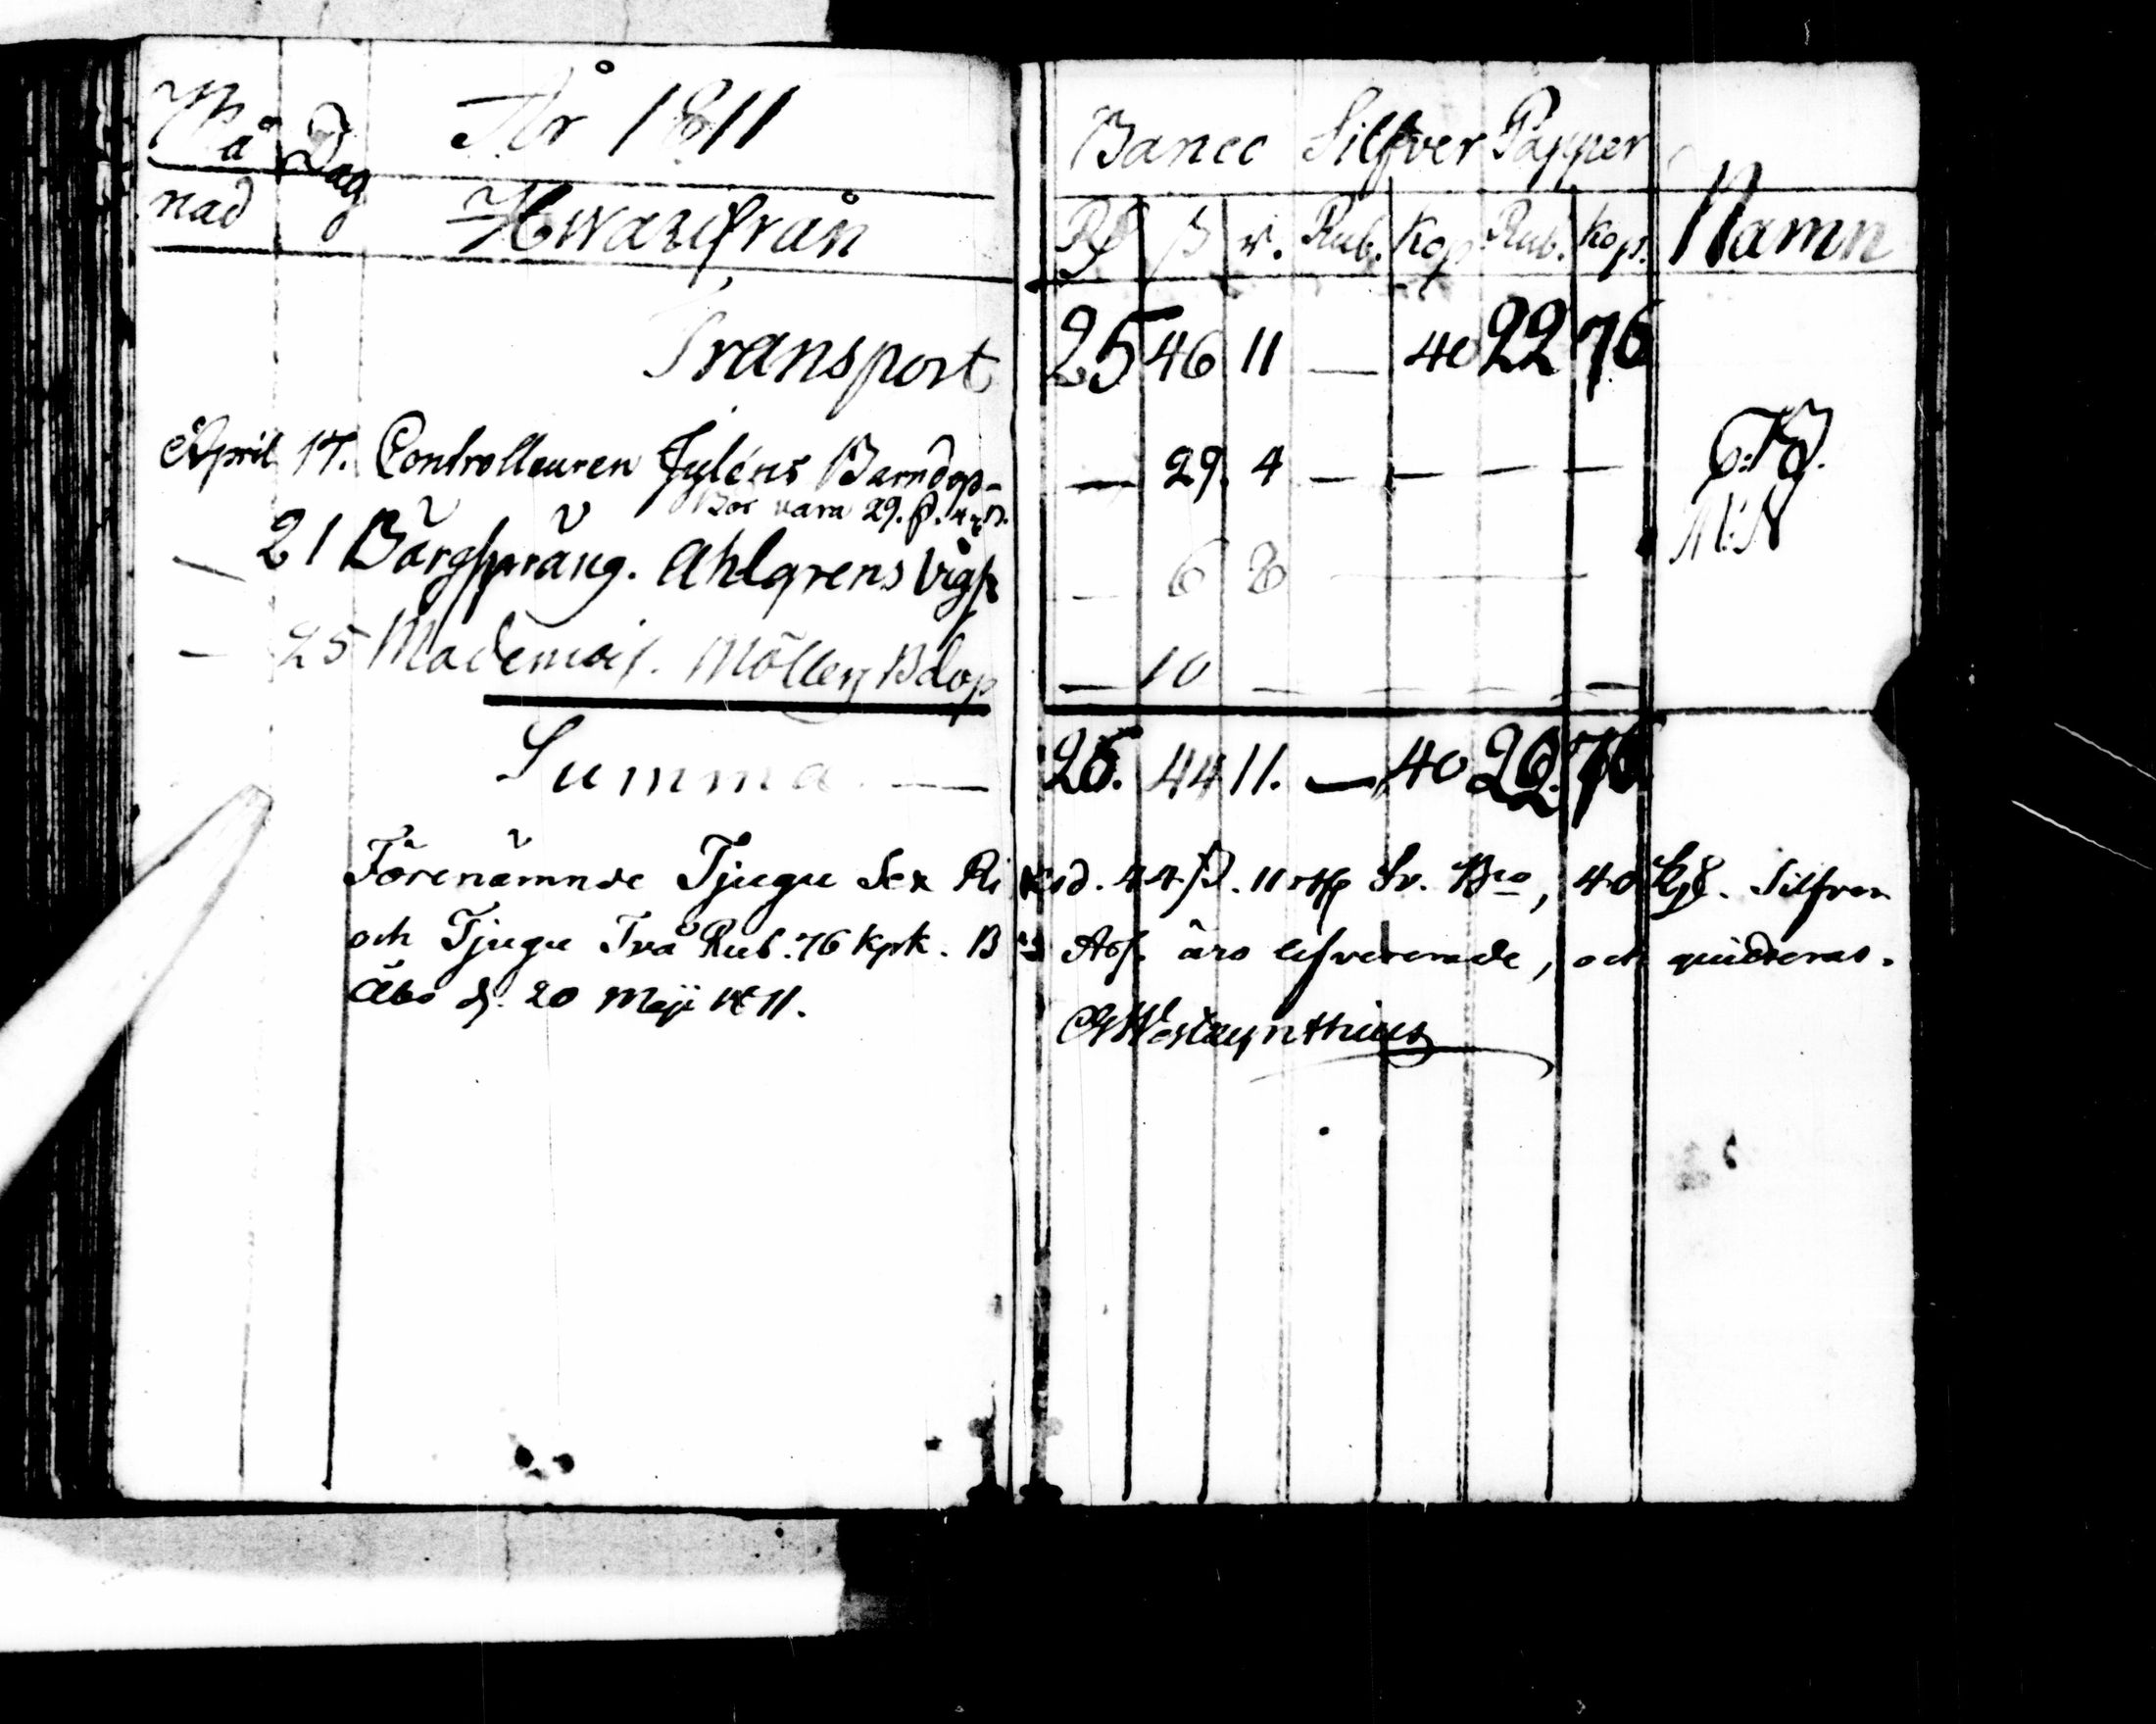 Må Dag År 1811 Banco Silfver Papper
nad Hwarifrån Rd ß r. Rub. Kop. Rub. Kop. Namn
Transport 25 46 11 — 40 22 76
April 17. Controlleuren Jyléns Barndop — 29. 4 — — — —
Bör vara 29. ß. 4 r.
— 21 Bärgspräng. Ahlgrens Vigs — 6 8 M:N
— 25 Mademois. Möllers Bdop — 10 — — — —
Summa — 26. 44 11. — 40 22. 76
Förenämnde Tjugu Sex Riksd. 44 ß. 11 rst Sv. Bco, 40 Silfver
och Tjugu Två Rub. 76 Kpk. Bco Ass. äro lefvererade, och quitteras.
Åbo d. 20 Maji 1811.